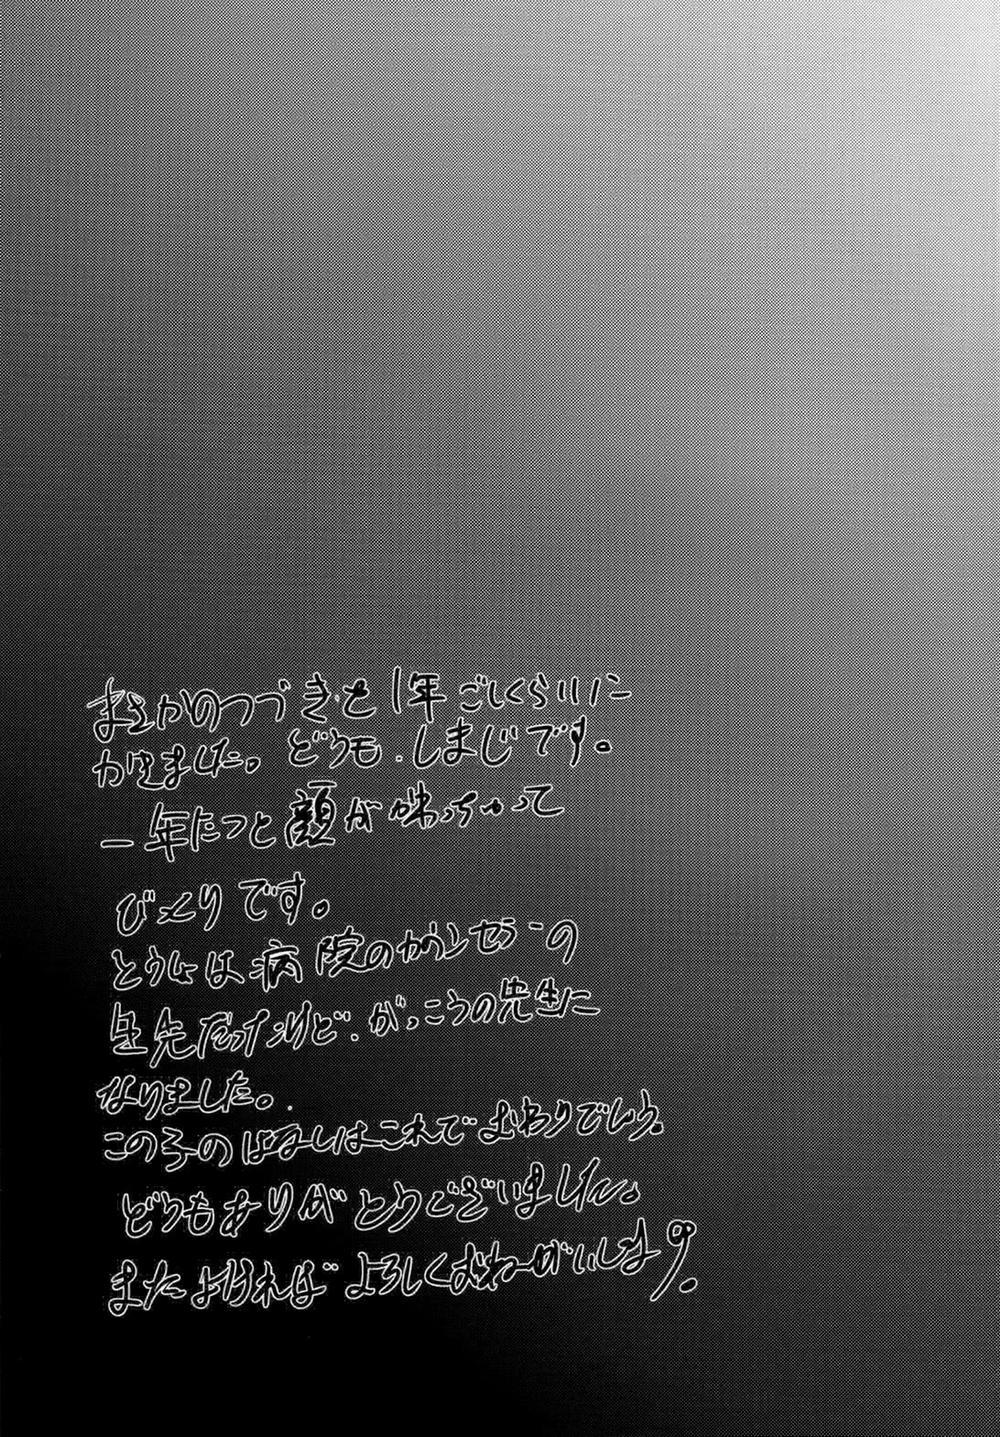 まさかのつづきを1年ごしくらいに
かきました。どうも、しまじです。
一年たつと顔が変っちゃって
びっくりです。
とうサは病院のカウンセラーの
先生だったけど、がっこうの先生に
なりました。
この子のはなしはこれでおわりでしょう。
どうもありがとうございました。
またよければよろしくおねがいします。